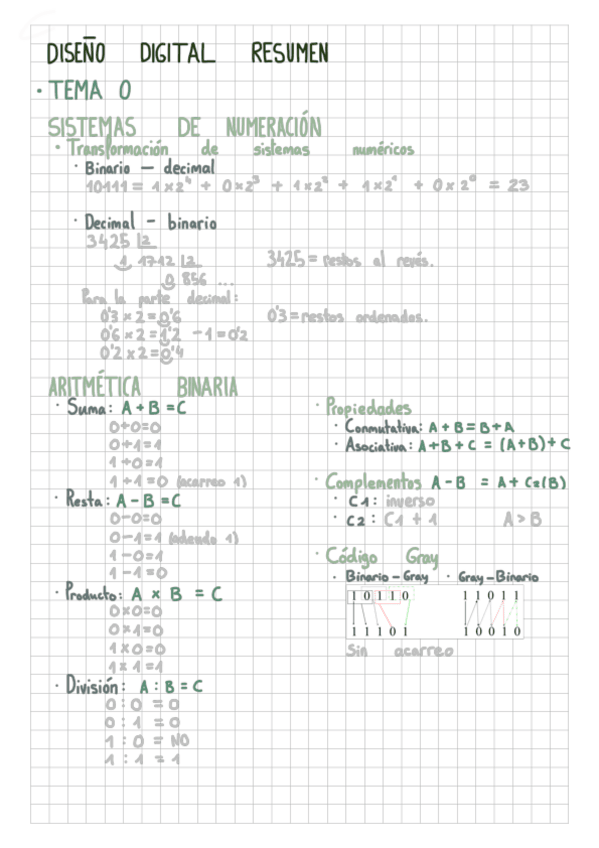 DISEÑO DIGITAL RESUMEN
· TEMA 0
SISTEMAS DE NUMERACIÓN
· Transformación de sistemas numéricos
· Binario — decimal
10111 = 1 x 2⁴ + 0 x 2³ + 1 x 2² + 1 x 2¹ + 0 x 2⁰ = 23
· Decimal - binario
3425 |2
1 1712 |2 3425 = restos al revés.
0 856 ...
Para la parte decimal:
0'3 x 2 = 0'6 0'3 = restos ordenados.
0'6 x 2 = 1'2 - 1 = 0'2
0'2 x 2 = 0'4
ARITMÉTICA BINARIA
· Suma: A + B = C
0+0=0
0+1=1
1+0=1
1+1=0 (acarreo 1)
· Resta: A - B = C
0-0=0
0-1=1 (adeudo 1)
1-0=1
1-1=0
· Producto: A x B = C
0x0=0
0x1=0
1x0=0
1x1=1
· División: A : B = C
0 : 0 = 0
0 : 1 = 0
1 : 0 = NO
1 : 1 = 1
· Propiedades
· Conmutativa: A + B = B + A
· Asociativa: A + B + C = (A+B) + C
· Complementos A - B = A + C2(B)
· C1: inverso
· C2: C1 + 1 A > B
· Código Gray
· Binario - Gray · Gray - Binario
1 0 1 1 0 1 1 0 1 1
1 1 1 0 1 1 0 0 1 0
Sin acarreo